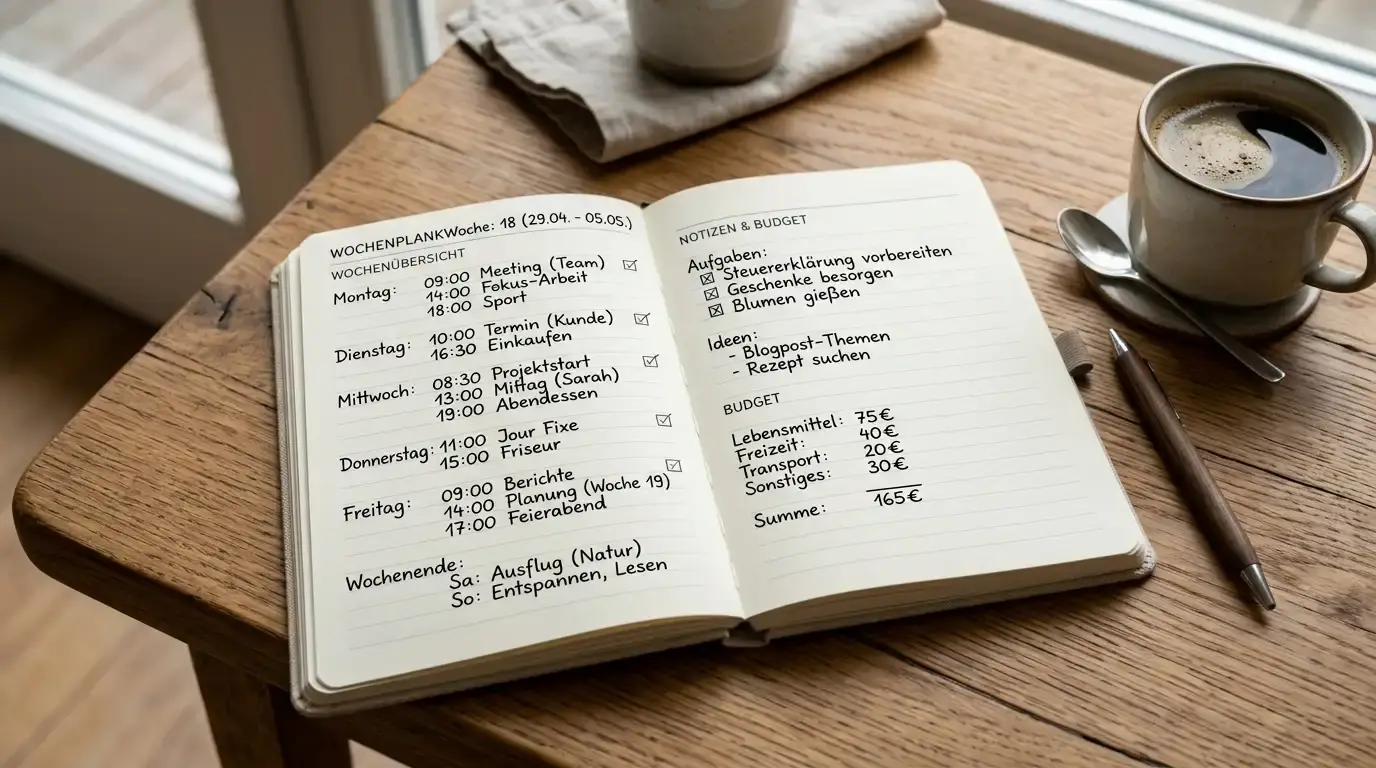 WOCHENPLANKWoche: 18 (29.04. - 05.05.)
WOCHENÜBERSICHT
Montag: 09:00 Meeting (Team) ☑
14:00 Fokus-Arbeit
18:00 Sport
Dienstag: 10:00 Termin (Kunde) ☑
16:30 Einkaufen
Mittwoch: 08:30 Projektstart ☑
13:00 Mittag (Sarah)
19:00 Abendessen
Donnerstag: 11:00 Jour Fixe ☑
15:00 Friseur
Freitag: 09:00 Berichte ☑
14:00 Planung (Woche 19)
17:00 Feierabend
Wochenende:
Sa: Ausflug (Natur)
So: Entspannen, Lesen
NOTIZEN & BUDGET
Aufgaben:
☒ Steuererklärung vorbereiten
☒ Geschenke besorgen
☒ Blumen gießen
Ideen:
- Blogpost-Themen
- Rezept suchen
BUDGET
Lebensmittel: 75€
Freizeit: 40€
Transport: 20€
Sonstiges: 30€
Summe: 165€